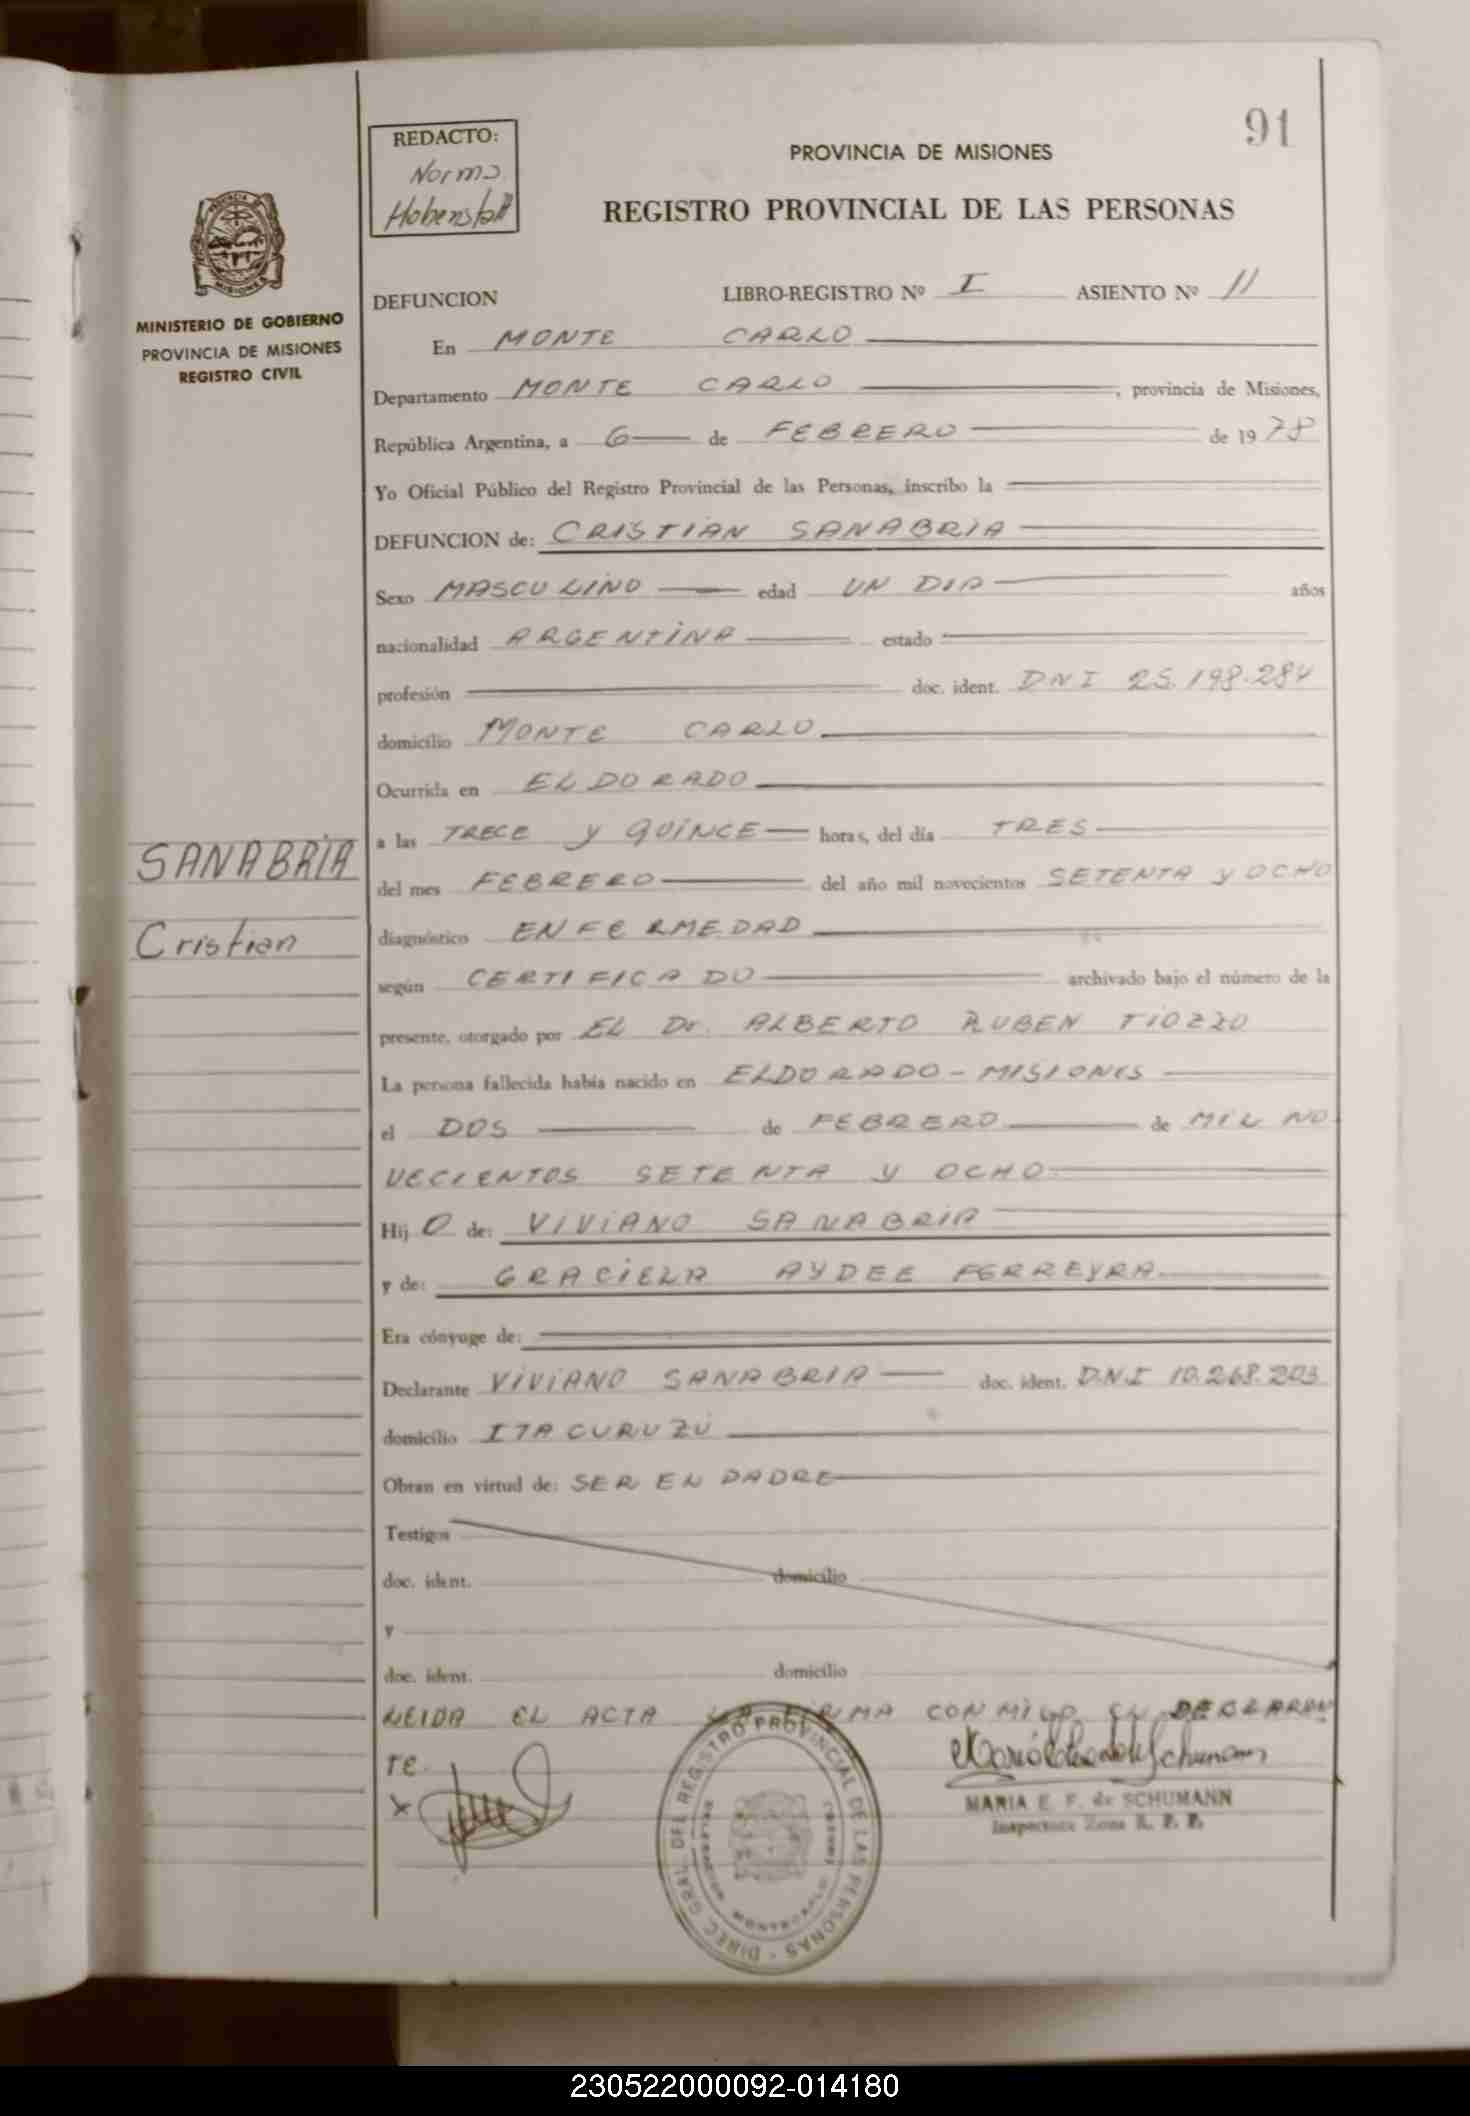 91
REDACTO:
Norma
PROVINCIA DE MISIONES
REGISTRO PROVINCIAL DE LAS PERSONAS
MINISTERIO DE GOBIERNO
PROVINCIA DE MISIONES
REGISTRO CIVIL
DEFUNCION LIBRO-REGISTRO Nº I ASIENTO Nº 11
En MONTE CARLO
Departamento MONTE CARLO, provincia de Misiones,
República Argentina, a 6 de FEBRERO de 1978
Yo Oficial Público del Registro Provincial de las Personas, inscribo la
DEFUNCION de: CRISTIAN SANABRIA
Sexo MASCULINO edad UN DIA años
nacionalidad ARGENTINA estado
profesión doc. ident. DNI 25.198.284
domicilio MONTE CARLO
Ocurrida en ELDORADO
a las TRECE y QUINCE horas, del día TRES
SANABRIA
del mes FEBRERO del año mil novecientos SETENTA y OCHO
Cristian
diagnóstico ENFERMEDAD
según CERTIFICADO archivado bajo el número de la
presente, otorgado por EL Dr. ALBERTO RUBEN TIOZZO
La persona fallecida había nacido en ELDORADO - MISIONES
el DOS de FEBRERO de MIL NO
VECIENTOS SETENTA y OCHO
Hij O de: VIVIANO SANABRIA
y de: GRACIELA AYDEE FERREYRA
Era cónyuge de:
Declarante VIVIANO SANABRIA doc. ident. D.N.I 10.268.203
domicilio ITACURUZU
Obran en virtud de: SER EL PADRE
Testigos
doc. ident. domicilio
y
doc. ident. domicilio
LEIDA EL ACTA LA FIRMA CONMIGO EL DECLARAN
TE.
X
MARIA E. F. de SCHUMANN
Inspectora Zona R. P. P.
DIREC. GRAL. DEL REGISTRO PROVINCIAL DE LAS PERSONAS
MONTECARLO
230522000092-014180